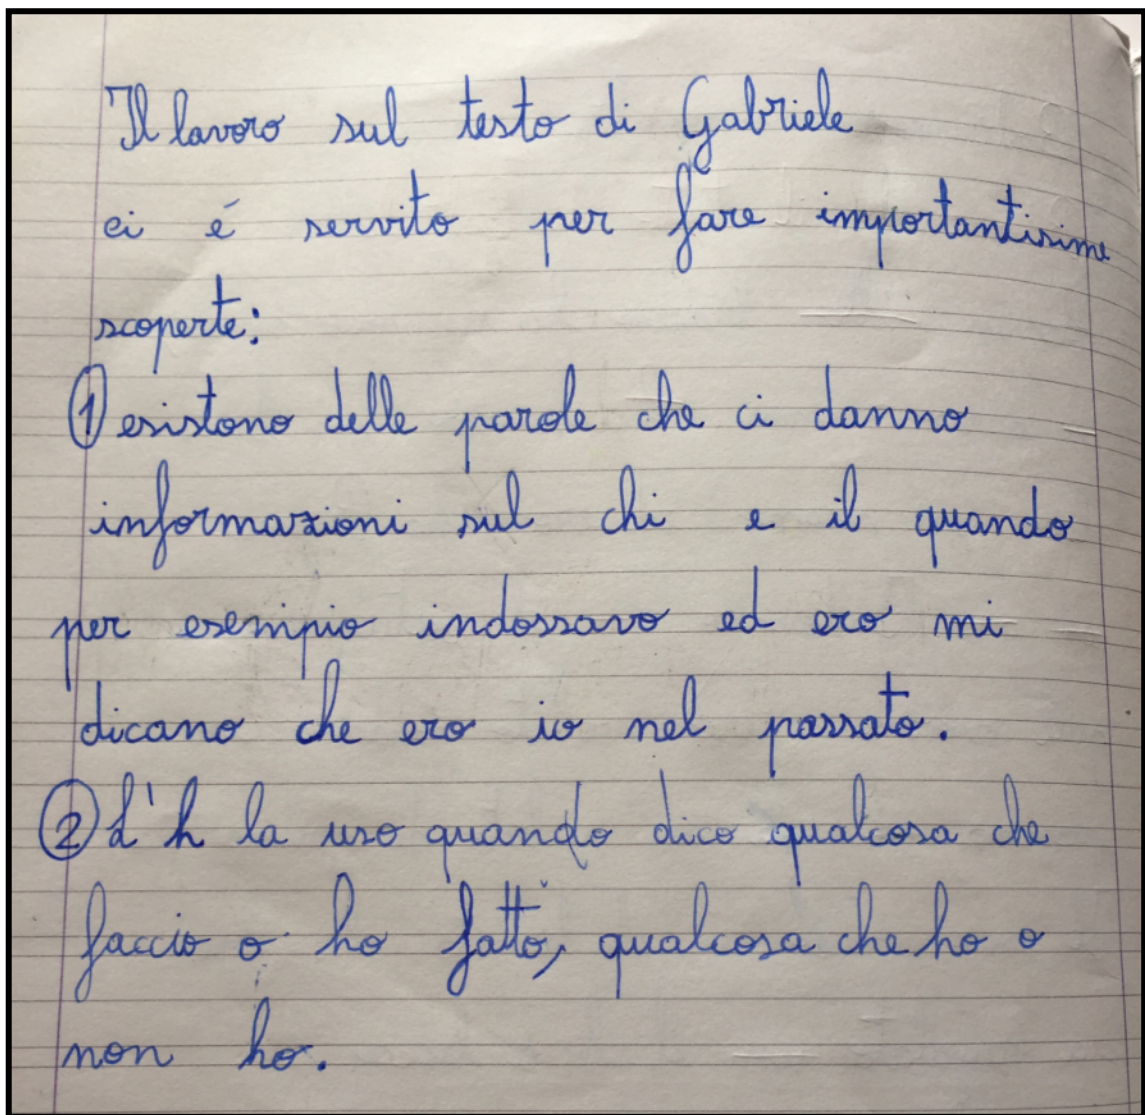 Il lavoro sul testo di Gabriele
ci é servito per fare importantisime
scoperte:
① esistono delle parole che ci danno
informazioni sul chi e il quando
per esempio indossavo ed ero mi
dicano che ero io nel passato.
② L'h la uso quando dico qualcosa che
faccio o ho fatto, qualcosa che ho o
non ho.